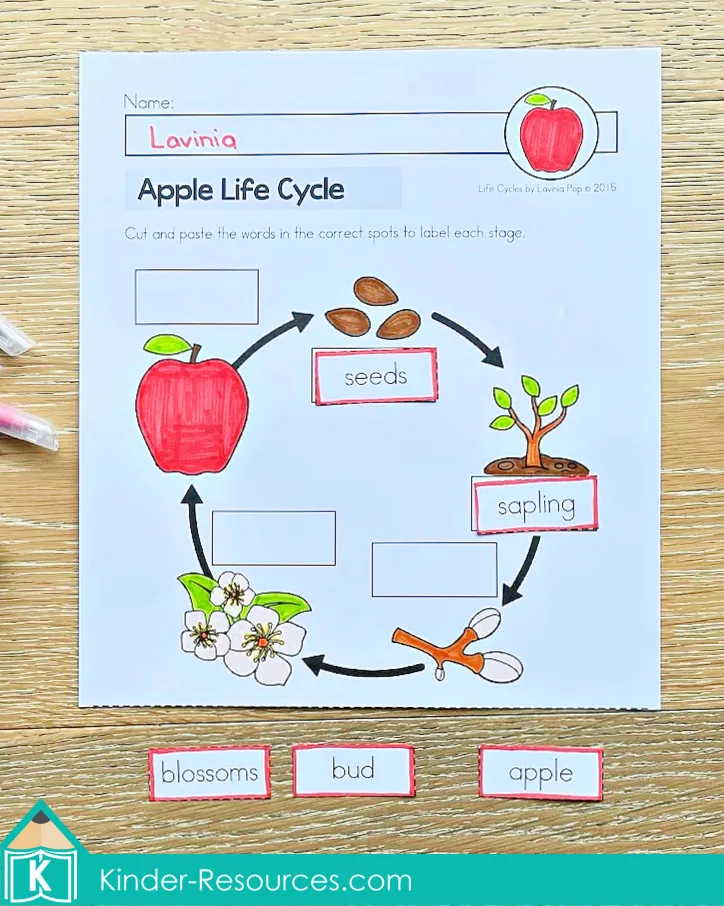 Name:
Lavinia
Life Cycles by Lavinia Pop © 2015
Apple Life Cycle
Cut and paste the words in the correct spots to label each stage.
seeds
sapling
blossoms
bud
apple
K
Kinder-Resources.com